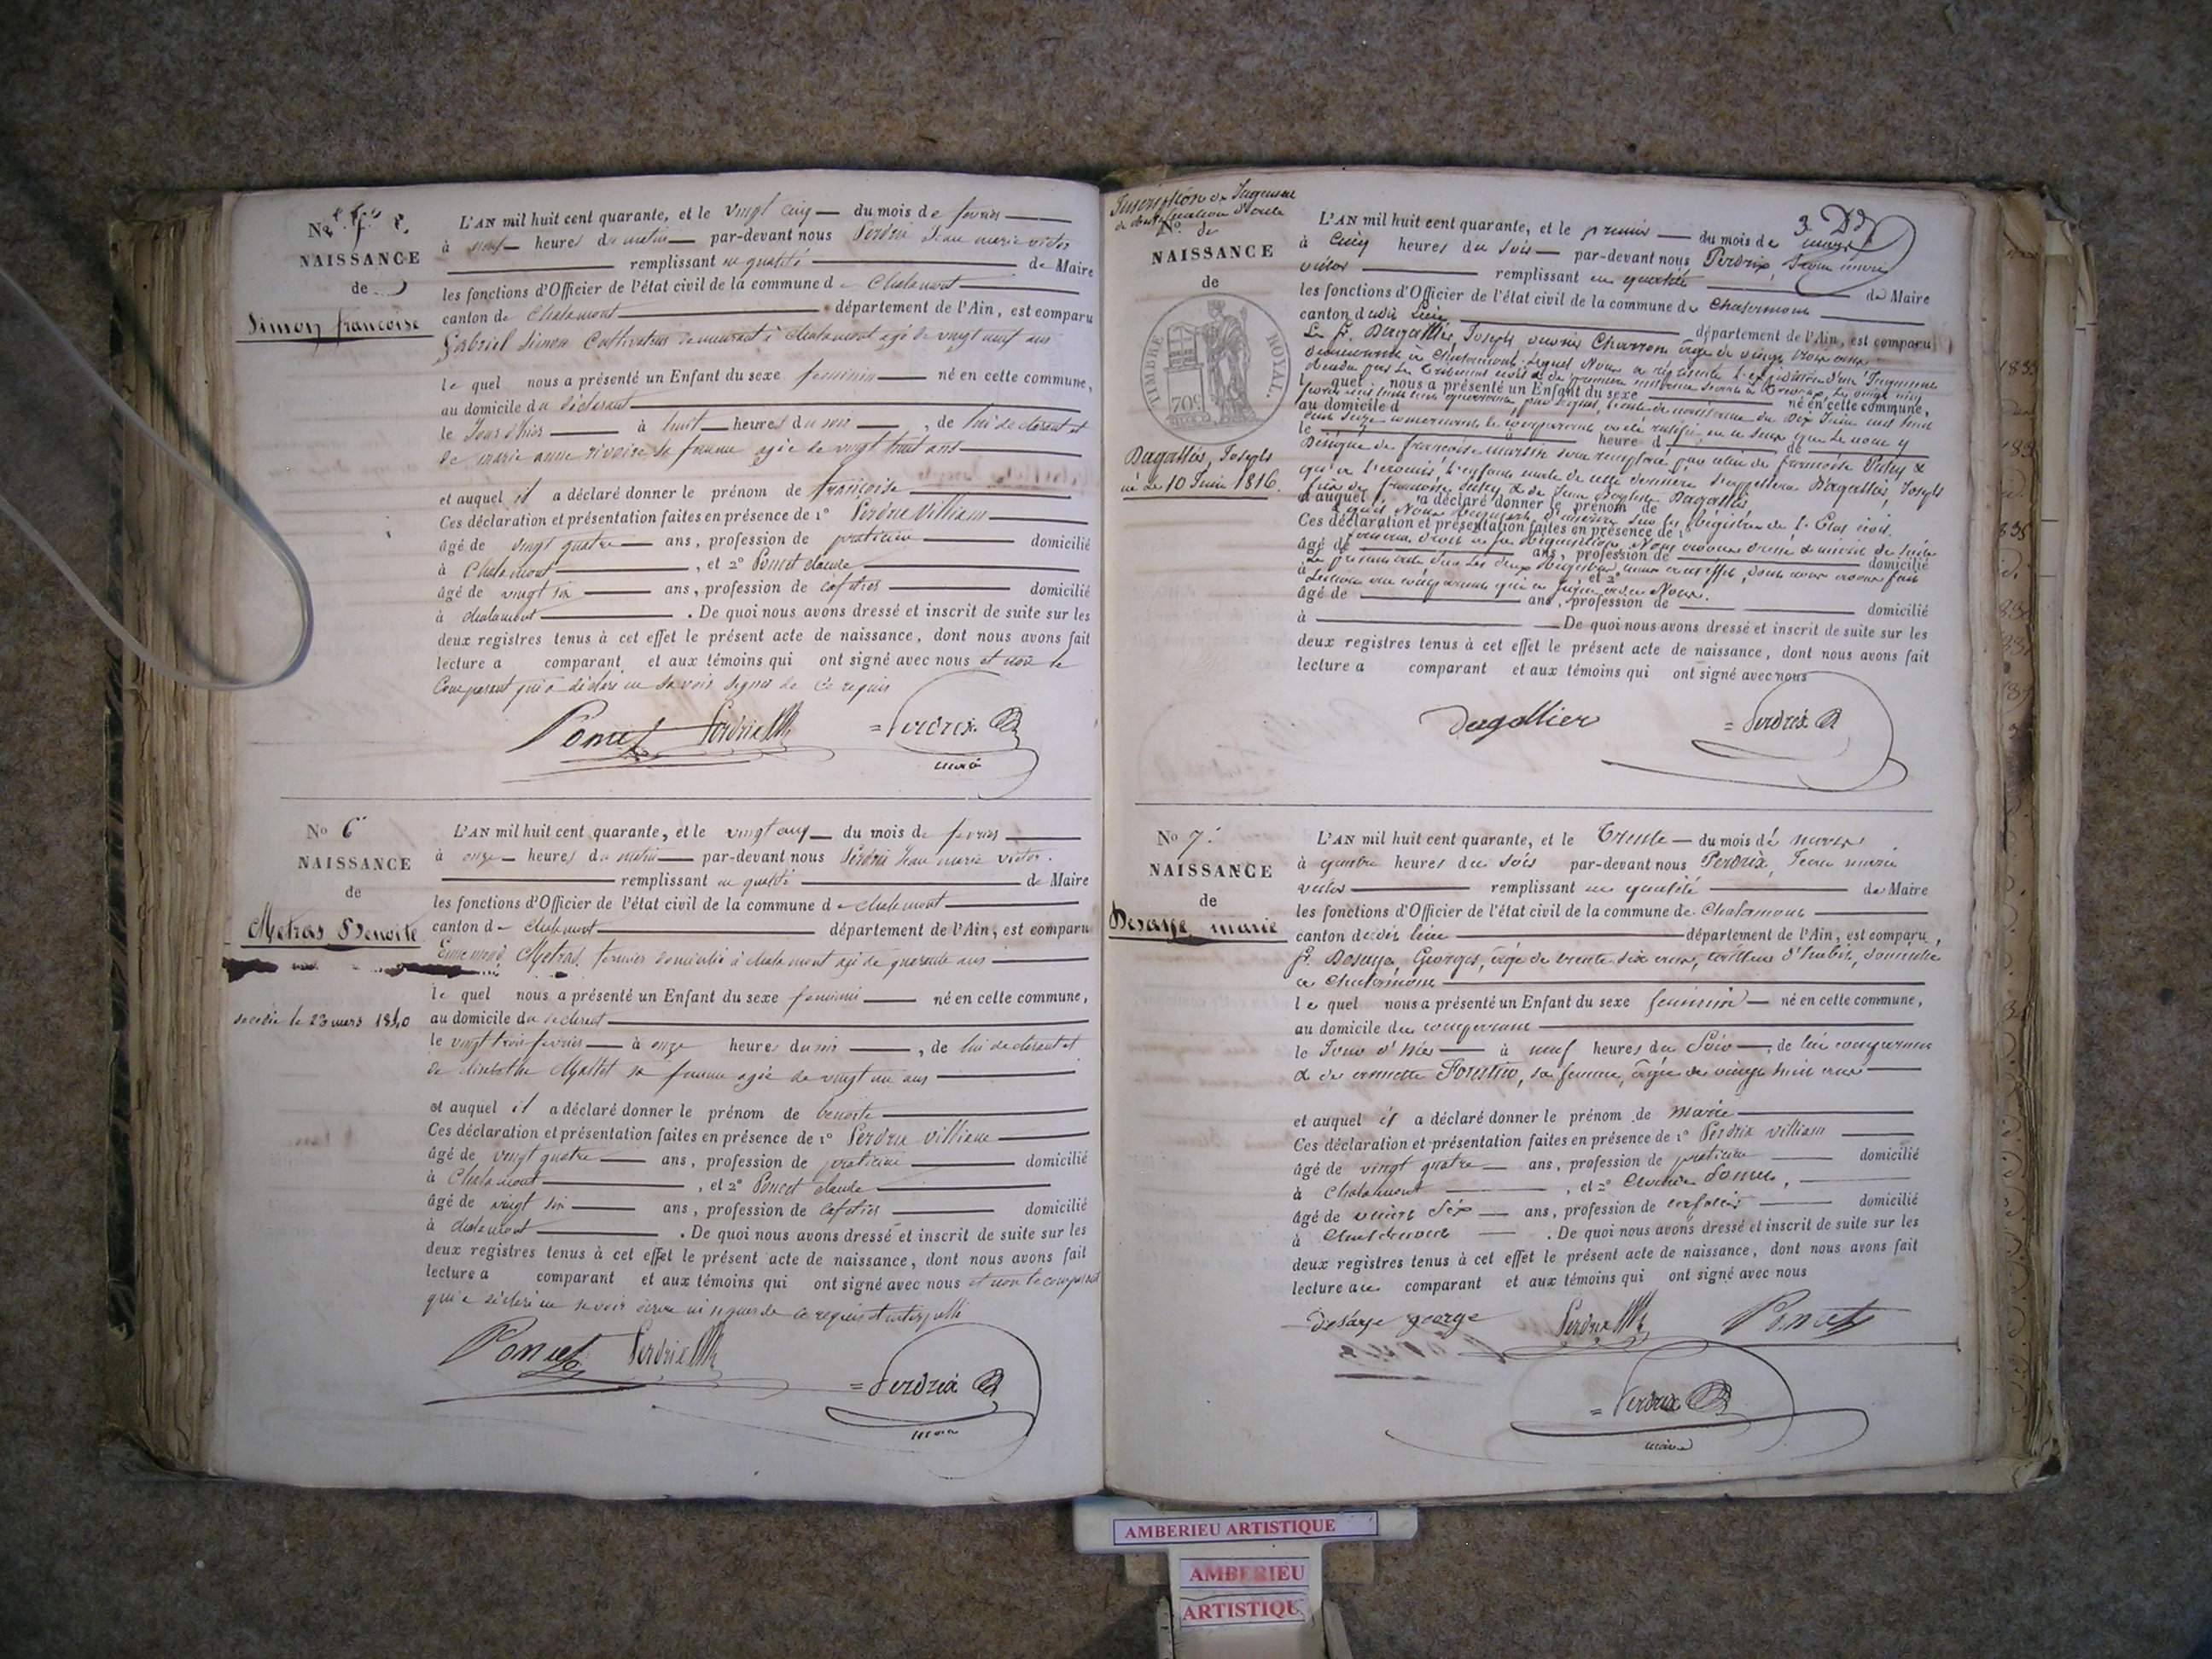 NAISSANCE
de
Simon françoise
L'AN mil huit cent quarante, et le vingt cinq du mois de fevrier
à neuf heures du matin par-devant nous Perdrix Jean marie victor
remplissant en qualité de Maire
les fonctions d'Officier de l'état civil de la commune de Chalamont
canton de Chalamont département de l'Ain, est comparu
Gabriel Simon Cultivateur demeurant à chalamont agé de vingt neuf ans
le quel nous a présenté un Enfant du sexe feminin né en cette commune,
au domicile du déclarant
le Jour d'hier à huit heures du soir, de lui declarant et
de marie anne rivoire sa femme agée de vingt huit ans
et auquel il a déclaré donner le prénom de françoise
Ces déclaration et présentation faites en présence de 1° Perdrix Villiam
âgé de vingt quatre ans, profession de praticien domicilié
à Chalamont, et 2° Poncet claude
âgé de vingt six ans, profession de cafetier domicilié
à chalamont. De quoi nous avons dressé et inscrit de suite sur les
deux registres tenus à cet effet le présent acte de naissance, dont nous avons fait
lecture a comparant et aux témoins qui ont signé avec nous et non le
Comparant qui a déclaré ne savoir signer de ce requis
Poncet Perdrix =Perdrix
maire
No 6
NAISSANCE
de
Metras Benoite
décédée le 23 mars 1840
L'AN mil huit cent quarante, et le vingt cinq du mois de fevrier
à onze heures du matin par-devant nous Perdrix Jean marie victor.
remplissant en qualité de Maire
les fonctions d'Officier de l'état civil de la commune de chalamont
canton de chalamont département de l'Ain, est comparu
Ennemond Metras fermier domicilié à chalamont agé de quarante ans
le quel nous a présenté un Enfant du sexe feminin né en cette commune,
au domicile du declarant
le vingt trois fevrier à onze heures du soir, de lui declarant et
de sa femme agée de vingt un ans
et auquel il a déclaré donner le prénom de benoite
Ces déclaration et présentation faites en présence de 1° Perdrix villiam
âgé de vingt quatre ans, profession de praticien domicilié
à Chalamont, et 2° Poncet claude
âgé de vingt six ans, profession de cafetier domicilié
à chalamont. De quoi nous avons dressé et inscrit de suite sur les
deux registres tenus à cet effet le présent acte de naissance, dont nous avons fait
lecture a comparant et aux témoins qui ont signé avec nous et non le comparant
qui a déclaré ne savoir écrire ni signer de ce requis et interpellé
Poncet Perdrix =Perdrix
maire
Inscription de Jugement
de
No
NAISSANCE
de
TIMBRE ROYAL.
70c
Dagallier, Joseph
né le 10 Juin 1816.
3.
L'AN mil huit cent quarante, et le premier du mois de mars
à cinq heures du soir par-devant nous Perdrix, Jean marie
victor remplissant en qualité de Maire
les fonctions d'Officier de l'état civil de la commune de Chalamont
canton dudit Lieu département de l'Ain, est comparu
Le Sr. Dagallier, Joseph, ouvrier Charron âgé de vingt trois ans
demeurant à Chalamont. Lequel Nous a représenté l'expédition d'un Jugement
obtenu par le tribunal civil de première instance
l quel nous a présenté un Enfant du sexe né en cette commune,
au domicile d
le heure d de
Désignée de françoise martin sera remplacé par celui de françoise
qu'à l'avenir l'enfant de cette dernière s'appellera Dagallier, Joseph
fils de françoise & de Jean Baptiste Dagallier
et auquel a déclaré donner le prénom de
Ces déclaration et présentation faites en présence de 1°
âgé de ans, profession de domicilié
à et 2°
âgé de ans, profession de domicilié
à De quoi nous avons dressé et inscrit de suite sur les
deux registres tenus à cet effet le présent acte de naissance, dont nous avons fait
lecture a comparant et aux témoins qui ont signé avec nous
Dagallier =Perdrix
No 7.
NAISSANCE
de
Desaye marie
L'AN mil huit cent quarante, et le Trente du mois de mars
à quatre heures du soir par-devant nous Perdrix, Jean marie
victor remplissant en qualité de Maire
les fonctions d'Officier de l'état civil de la commune de Chalamont
canton dudit lieu département de l'Ain, est comparu,
Sr. Desaye Georges, âgé de trente six ans, tailleur d'habits, domicilié
à Chalamont
le quel nous a présenté un Enfant du sexe feminin né en cette commune,
au domicile du comparant
le Jour d'hier à neuf heures du Soir, de lui comparant
& de annette, sa femme, âgée de vingt huit ans
et auquel il a déclaré donner le prénom de marie
Ces déclaration et présentation faites en présence de 1° Perdrix villiam
âgé de vingt quatre ans, profession de praticien domicilié
à Chalamont, et 2° Claude Poncet,
âgé de vingt six ans, profession de cafetier domicilié
à Chalamont. De quoi nous avons dressé et inscrit de suite sur les
deux registres tenus à cet effet le présent acte de naissance, dont nous avons fait
lecture au comparant et aux témoins qui ont signé avec nous
desaye george Perdrix Poncet
=Perdrix
maire
AMBERIEU ARTISTIQUE
AMBERIEU
ARTISTIQUE